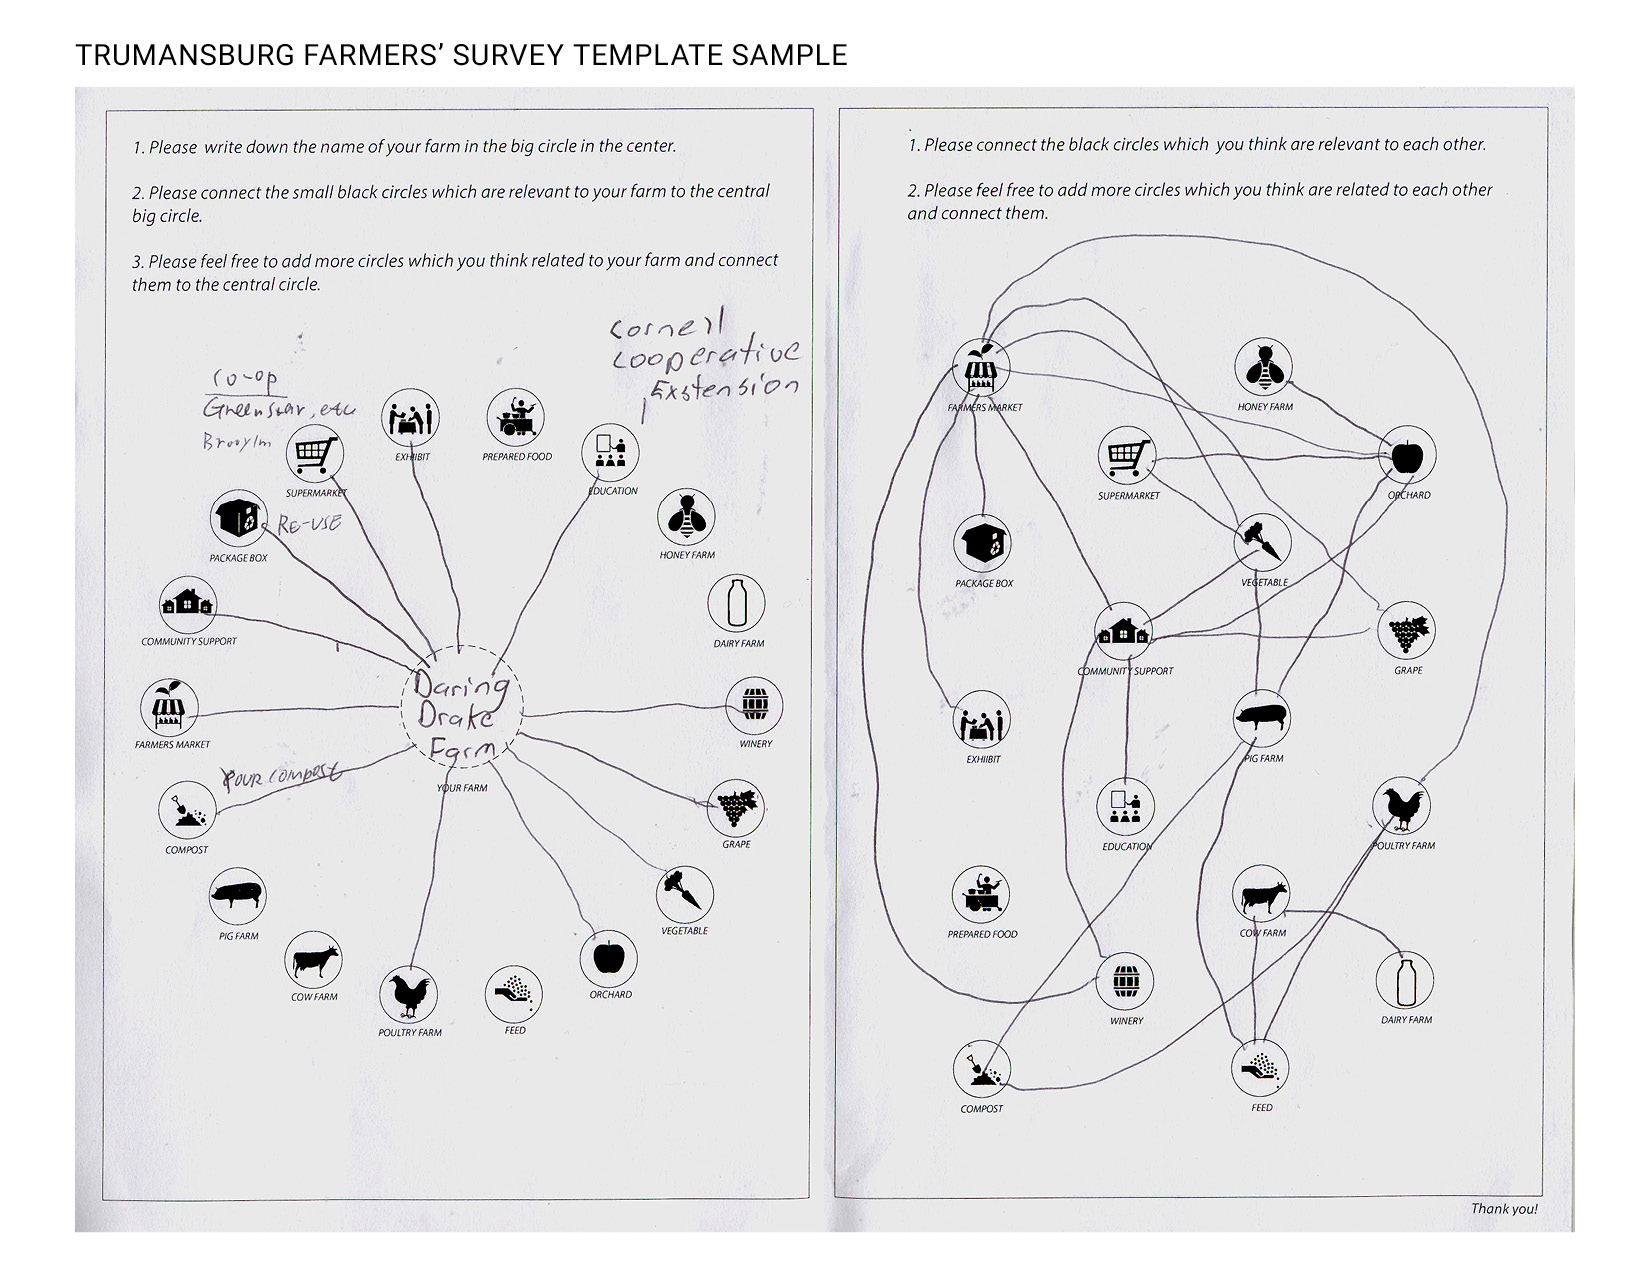 TRUMANSBURG FARMERS’ SURVEY TEMPLATE SAMPLE
1. Please write down the name of your farm in the big circle in the center.
2. Please connect the small black circles which are relevant to your farm to the central
big circle.
3. Please feel free to add more circles which you think related to your farm and connect
them to the central circle.
Cornell
Cooperative
Exstension
Co-op
Greenstar, etc
EXHIBIT
PREPARED FOOD
SUPERMARKET
EDUCATION
RE-USE
PACKAGE BOX
HONEY FARM
COMMUNITY SUPPORT
DAIRY FARM
Daring
Drake
Farm
FARMERS MARKET
WINERY
YOUR COMPOST
YOUR FARM
COMPOST
GRAPE
PIG FARM
VEGETABLE
COW FARM
ORCHARD
POULTRY FARM
FEED
1. Please connect the black circles which you think are relevant to each other.
2. Please feel free to add more circles which you think are related to each other
and connect them.
FARMERS MARKET
HONEY FARM
SUPERMARKET
ORCHARD
PACKAGE BOX
VEGETABLE
COMMUNITY SUPPORT
GRAPE
EXHIIBIT
PIG FARM
EDUCATION
POULTRY FARM
PREPARED FOOD
COW FARM
WINERY
DAIRY FARM
COMPOST
FEED
Thank you!